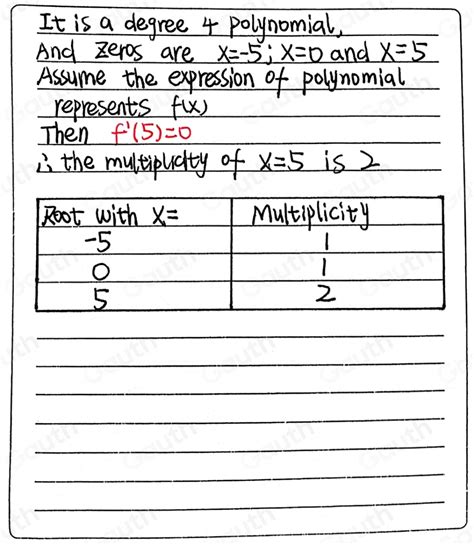 It is a degree 4 polynomial,
And zeros are x=-5; x=0 and x=5
Assume the expression of polynomial
represents f(x)
Then f'(5)=0
∴ the multiplicity of x=5 is 2
Root with x= Multiplicity
-5 1
0 1
5 2